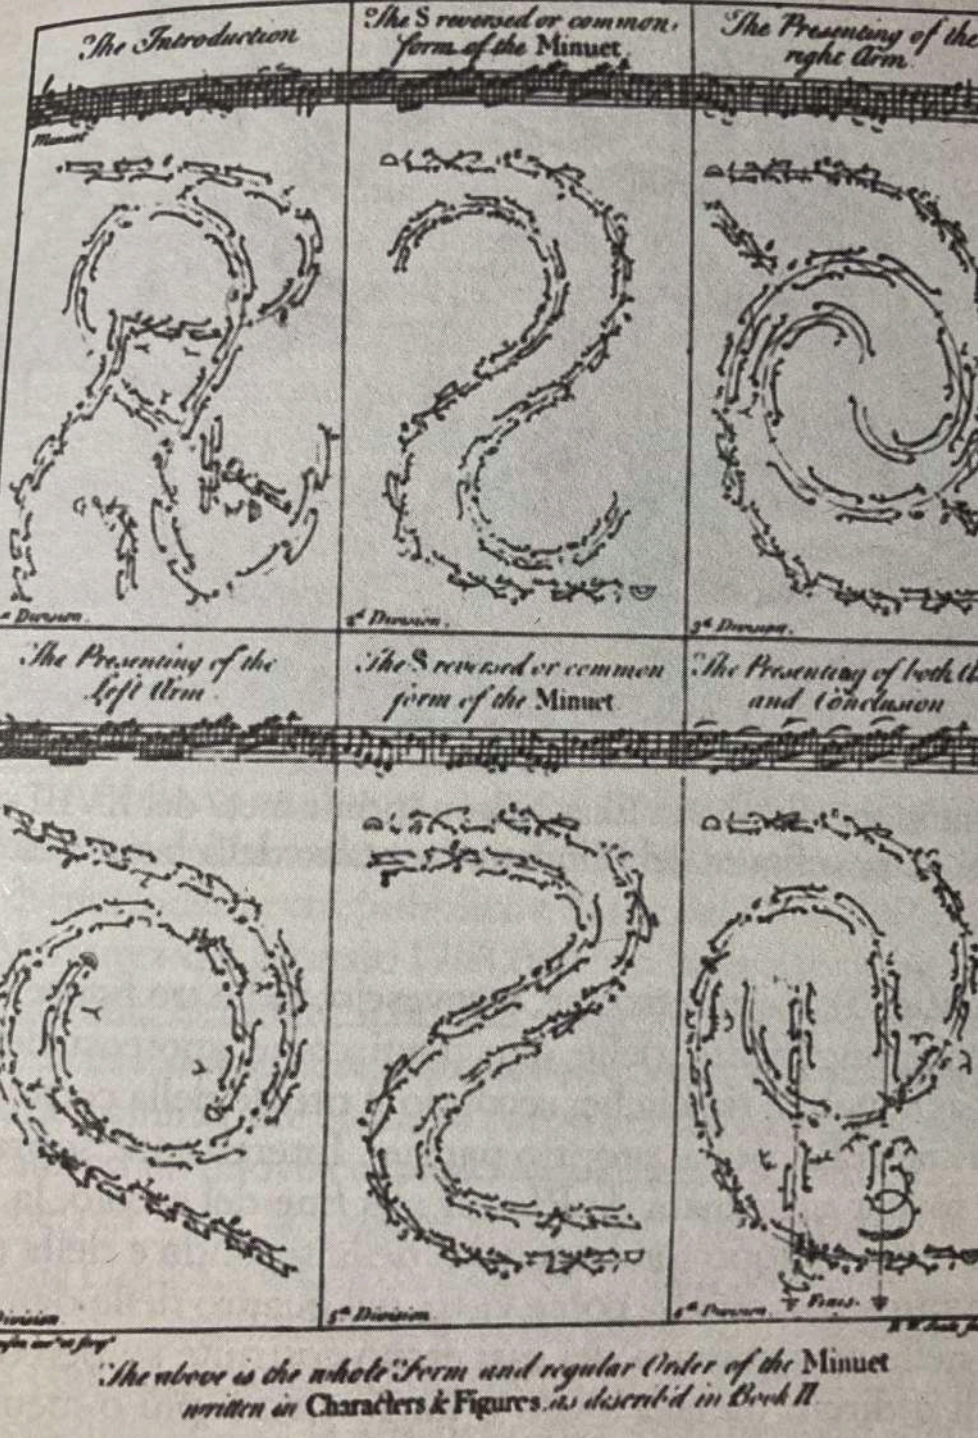 The Introduction
The S reversed or common
form of the Minuet
The Presenting of the
right Arm
Minuet
Division.
2d Division.
3d Division.
The Presenting of the
Left Arm
The S reversed or common
form of the Minuet
The Presenting of both
and Conclusion
Division
5th Division
6th Division
Finis.
The above is the whole Form and regular Order of the Minuet
written in Characters & Figures, as describ'd in Book II